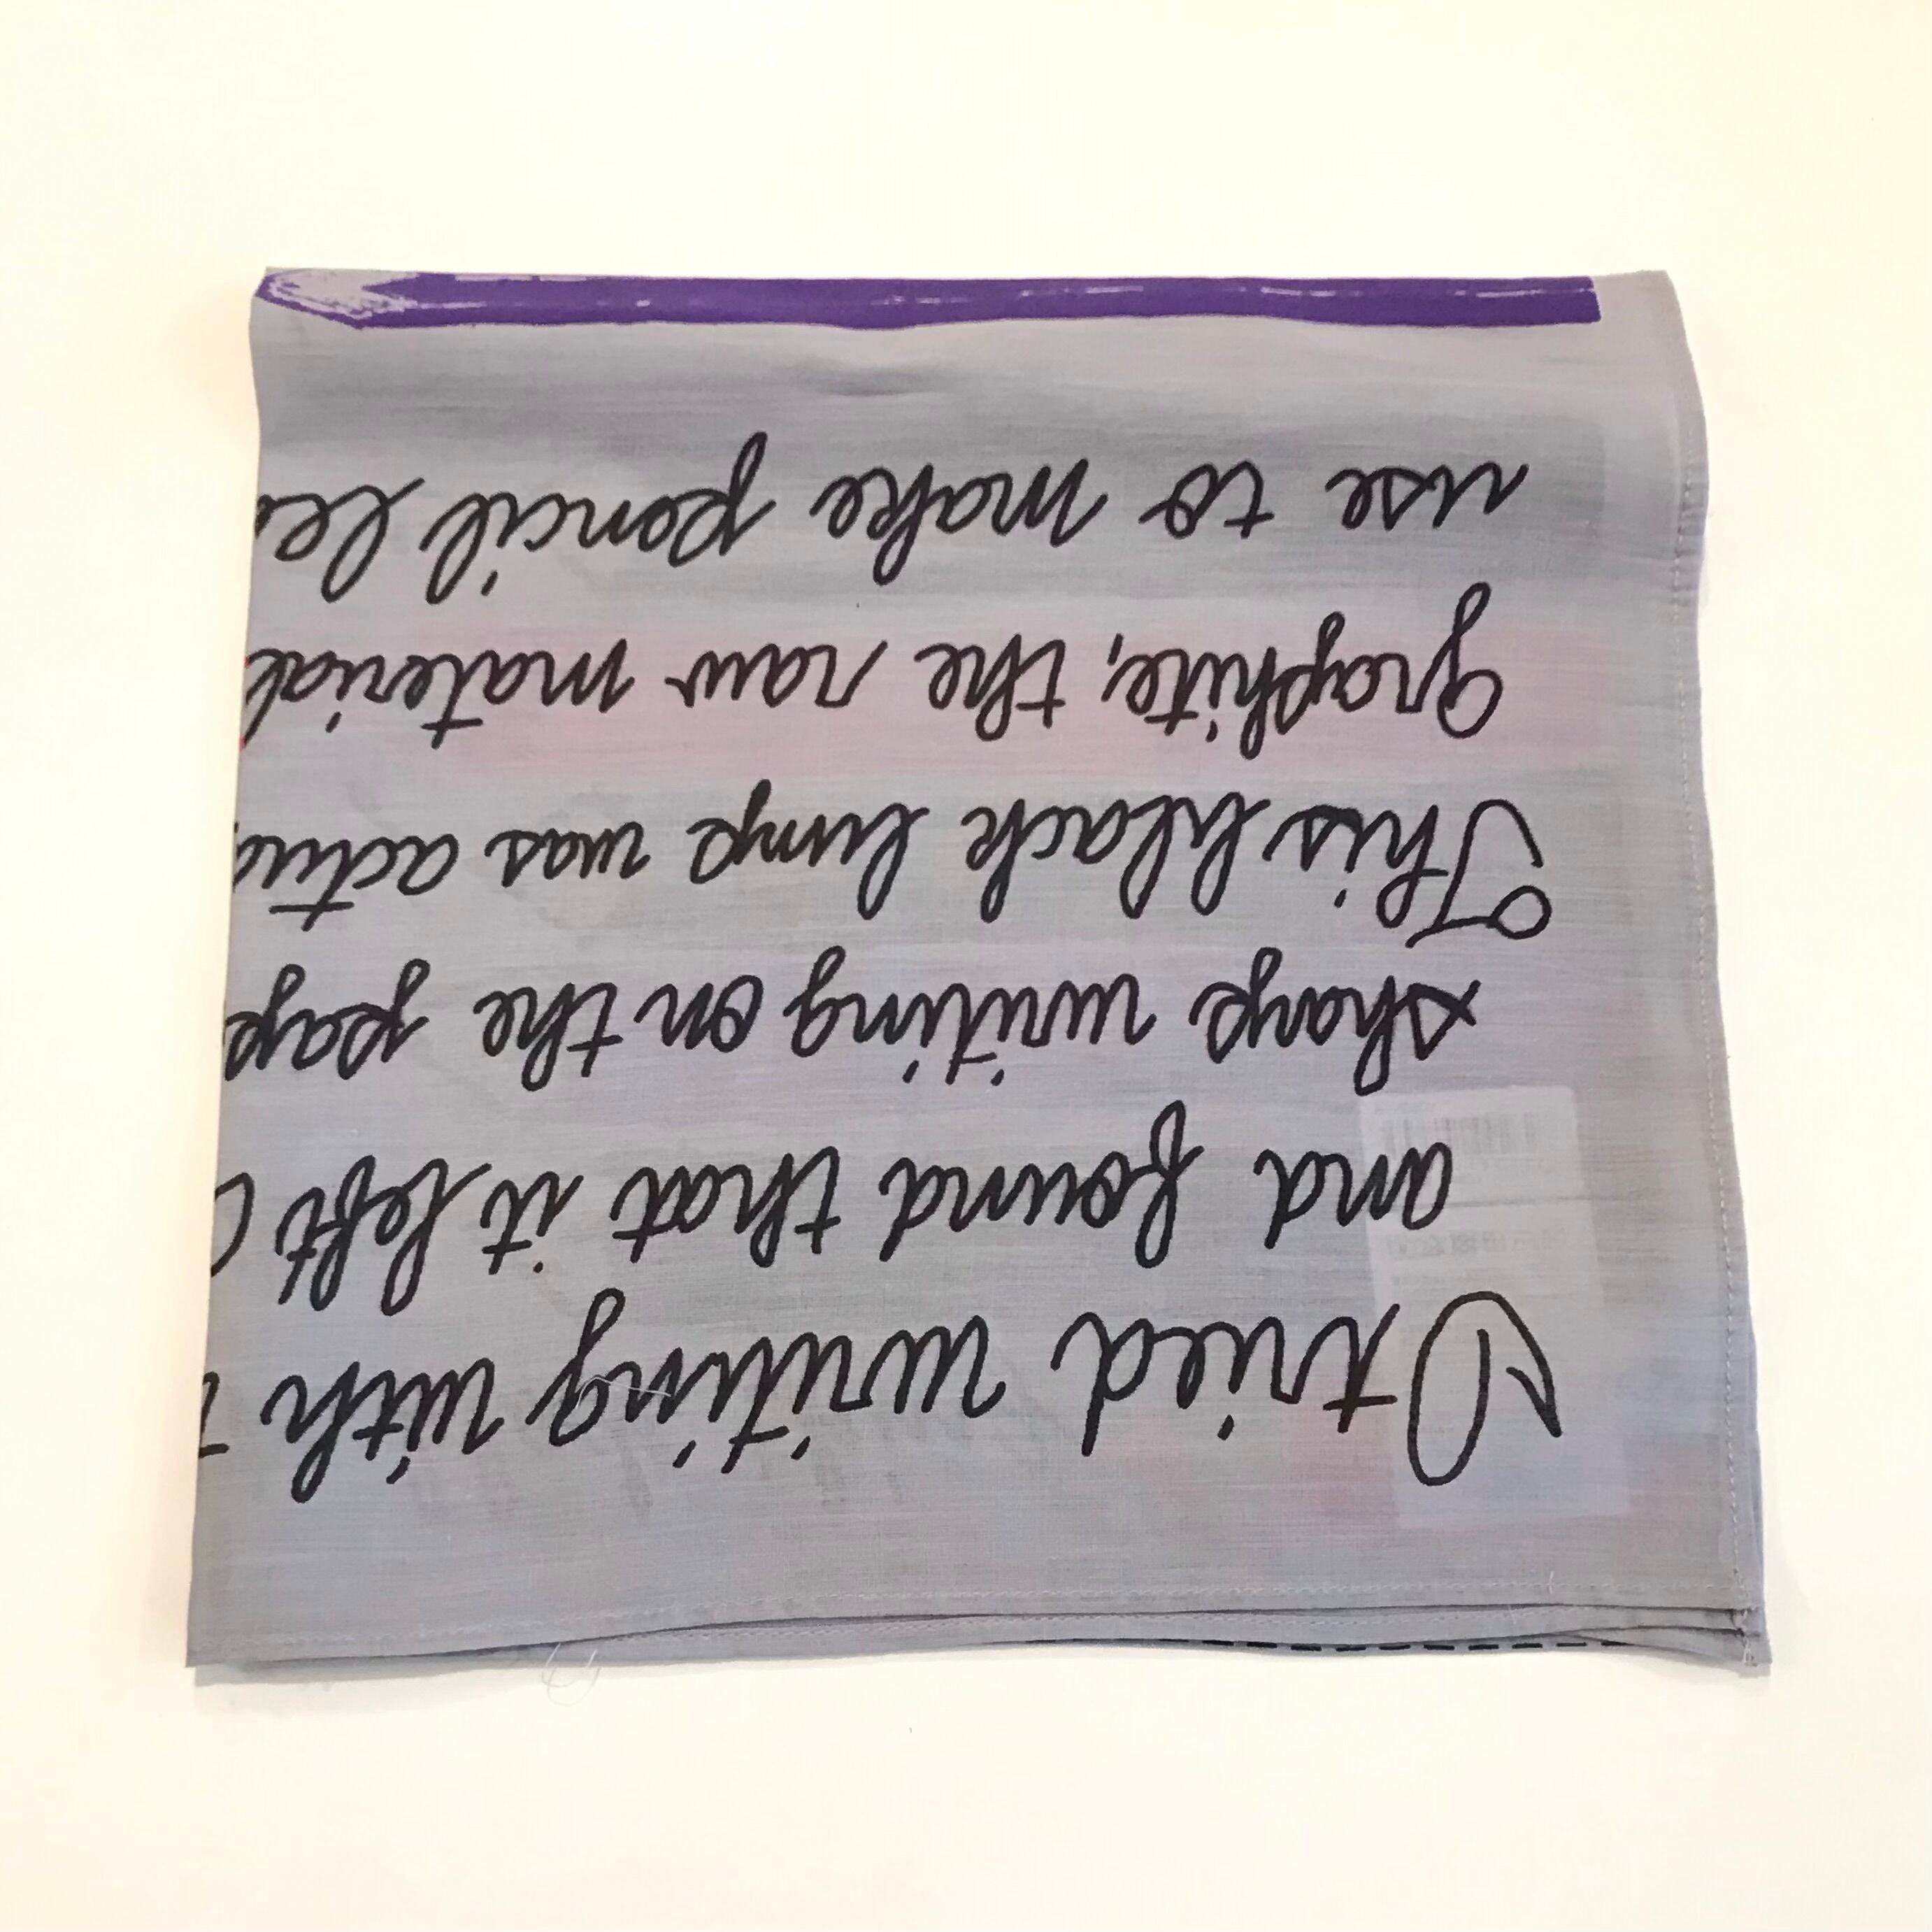 I tried writing with
and found that it left
sharp writing on the
This black lump was
graphite, the raw material
use to make pencil